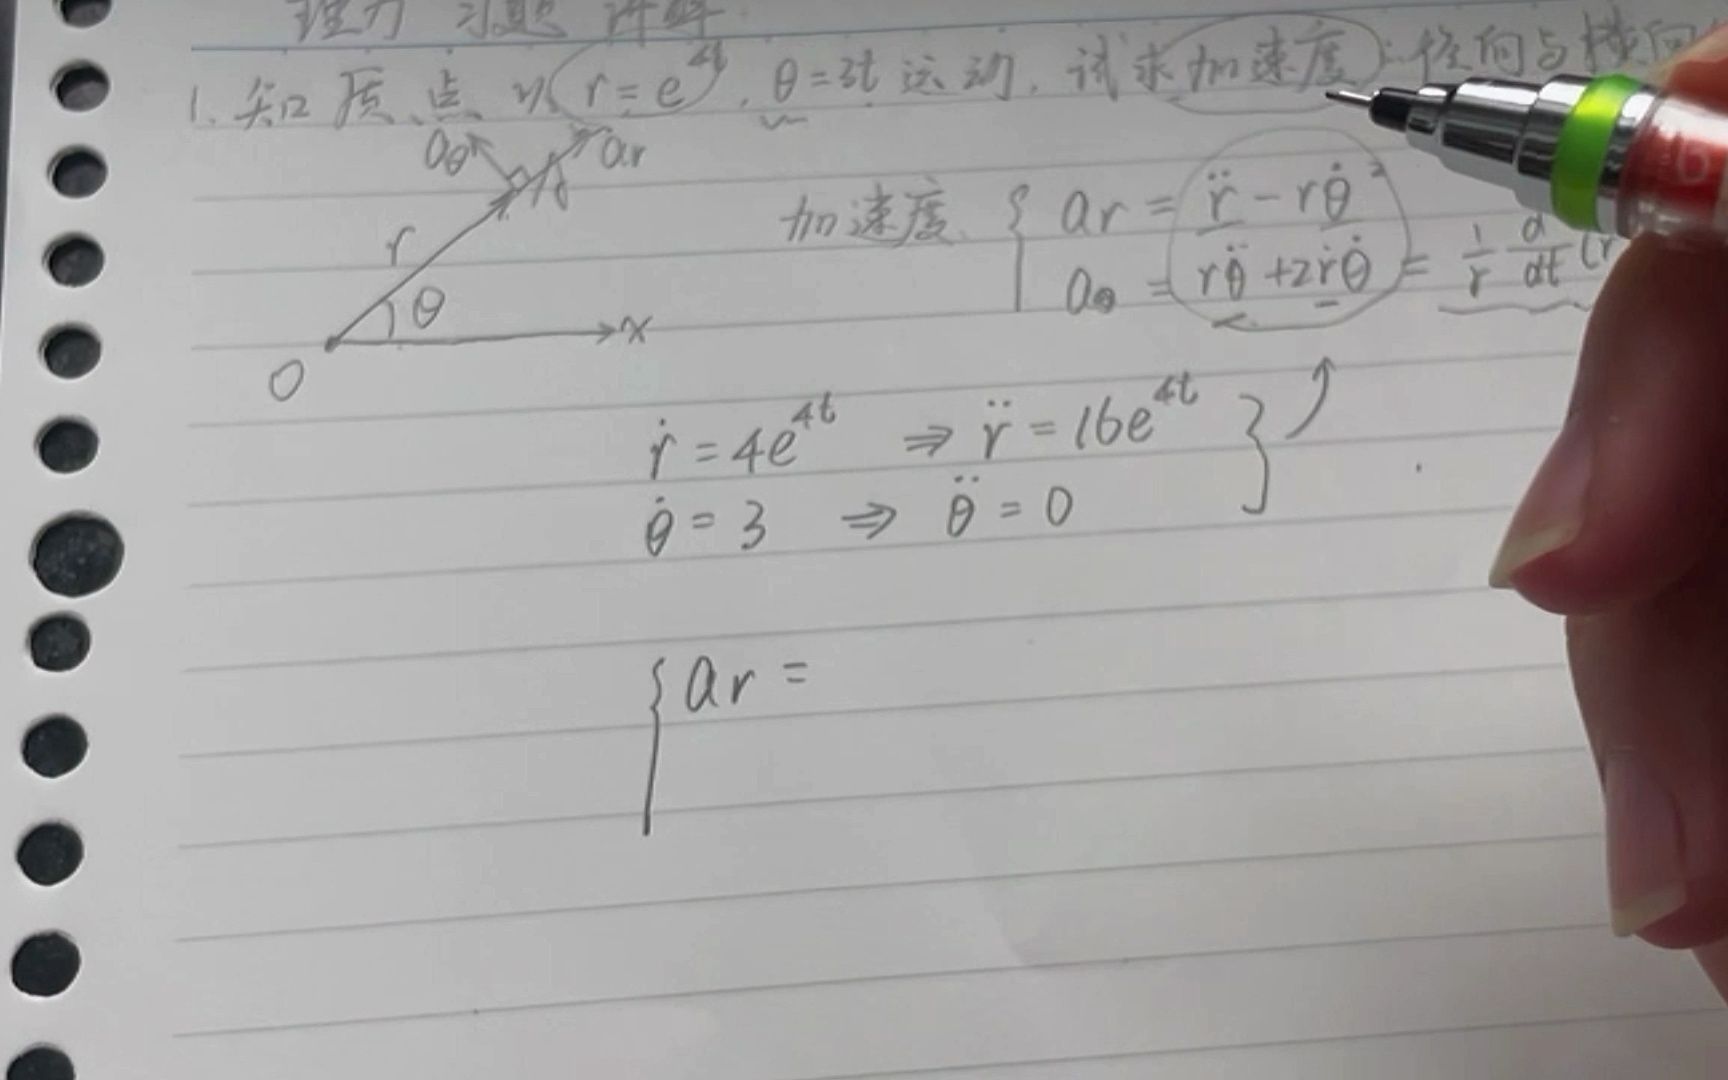 理力 习题 讲解
1. 知 质 点 以 r = e^{4t}, θ = 3t 运动, 试求 加速度 : 径向与横向
aθ ar
r
θ
x
O
加速度 { ar = r̈ - rθ̇²
aθ = rθ̈ + 2ṙθ̇ = 1/r d/dt (r
ṙ = 4e^{4t} ⇒ r̈ = 16e^{4t}
θ̇ = 3 ⇒ θ̈ = 0
{ ar =